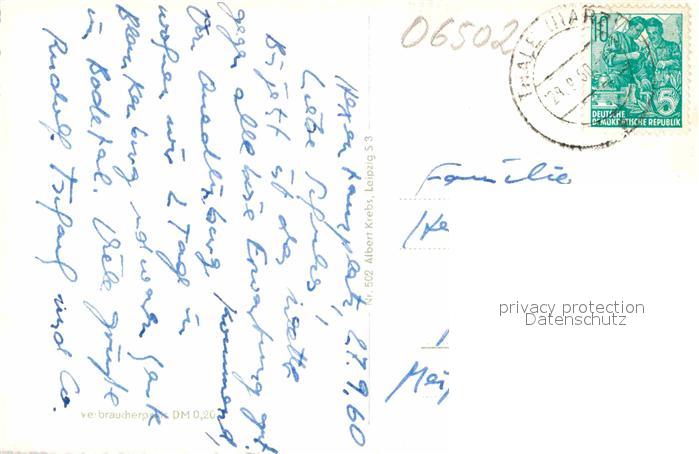 06502
THALE (HARZ)
10
DEUTSCHE
DEMOKRATISCHE REPUBLIK
5
Hexentanzplatz, 27.9.60
Liebe
Bis jetzt ist das Wetter
gegen alle böse Erwartung gut.
Von Quedlinburg kommend,
wohnen wir 2 Tage in
Blankenburg und waren heute
im Bodetal. Viele Grüße
Rudolf und Co.
Nr. 502 Albert Krebs, Leipzig S 3
Verbraucherpreis DM 0,20
Familie
He
Mei
privacy protection
Datenschutz